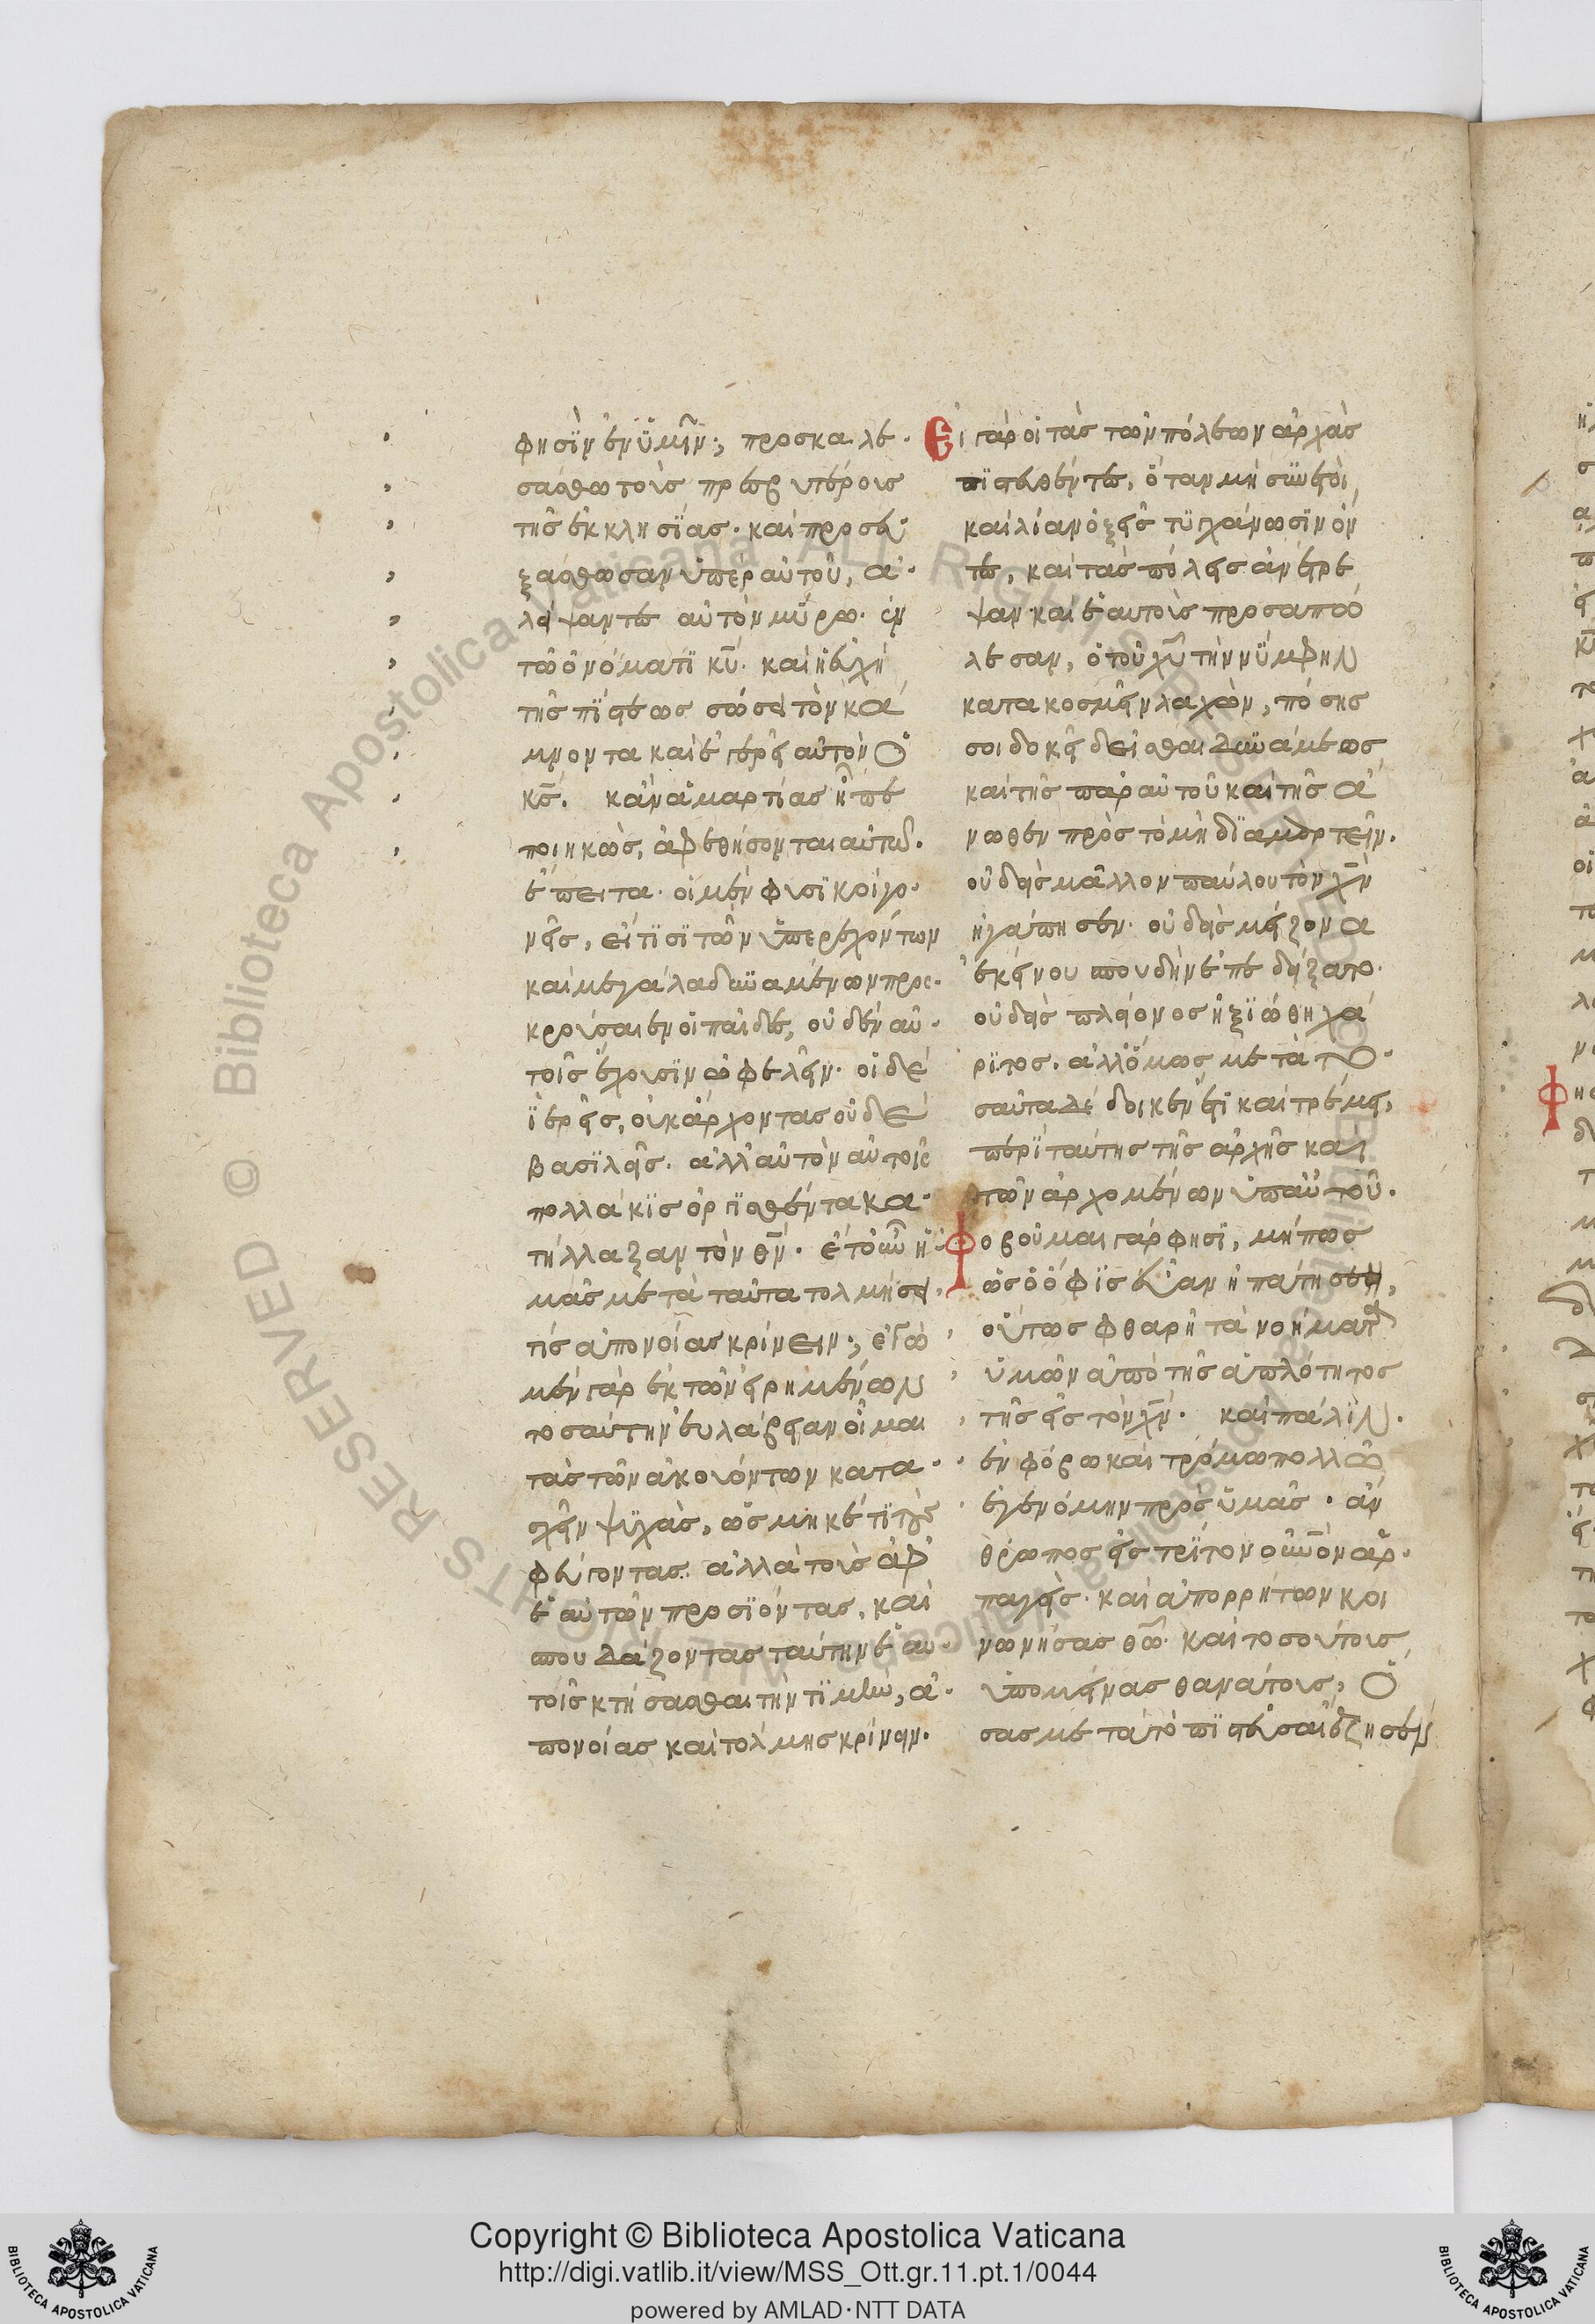 φησὶν ἐν ὑμῖν; προσκαλε
σάσθω τοὺς πρεσβυτέρους
τῆς ἐκκλησίας· καὶ προσευ
ξάσθωσαν ὑπὲρ αὐτοῦ, ἀ
λείψαντες αὐτὸν μύρω· ἐν
τῶ ὀνόματι κυ· καὶ ἡ εὐχὴ
τῆς πίστεως σώσει τὸν κά
μνοντα καὶ ἐγερεῖ αὐτὸν ὁ
κς. κἂν ἁμαρτίας ἦ πε
ποιηκὼς, ἀφεθήσονται αὐτῶ.
ἔπειτα· οἱ μὲν φυσικοὶ γο
νεῖς, εἴ τισι τῶν ὑπερεχόντων
καὶ μεγάλα δυναμένων προσ
κρούσαιεν οἱ παῖδες, οὐδὲν αὐ
τοῖς ἔχουσιν ὠφελεῖν· οἱ δὲ
ἱερεῖς, οὐκ ἄρχοντας οὐδὲ
βασιλεῖς· ἀλλ' αὐτὸν αὐτοῖς
πολλάκις ὀργισθέντα κα
τήλλαξαν τὸν θν. ἔτ' οὖν ἡ
μᾶς μετὰ ταῦτα τολμήσει
τίς ἀπονοίας κρίνειν; ἐγὼ
μὲν γὰρ ἐκ τῶν εἰρημένων
τοσαύτην εὐλάβειαν οἶμαι
τὰς τῶν ἀκουόντων κατα
σχεῖν ψυχὰς, ὡς μηκέτι τοὺς
φεύγοντας· ἀλλὰ τοὺς ἀφ'
ἑαυτῶν προσιόντας, καὶ
σπουδάζοντας ταύτην ἑαυ
τοῖς κτήσασθαι τὴν τιμὴν, ἀ
πονοίας καὶ τόλμης κρίνειν.
Εἰ γὰρ οἱ τὰς τῶν πόλεων ἀρχὰς
πιστευθέντες, ὅταν μὴ συνετοὶ
καὶ λίαν ὀξεῖς τυγχάνωσιν ὄν
τες, καὶ τὰς πόλεις ἀνέτρε
ψαν καὶ ἑαυτοὺς προσαπώ
λεσαν, ὁ τοῦ χυ τὴν νύμφην
κατακοσμεῖν λαχὼν, πόσης
σοι δοκεῖ δεῖσθαι δυνάμεως
καὶ τῆς παρ' αὐτοῦ καὶ τῆς ἄ
νωθεν πρὸς τὸ μὴ διαμαρτεῖν.
οὐδεὶς μᾶλλον παύλου τὸν χν
ἠγάπησεν· οὐδεὶς μείζονα
ἐκείνου σπουδὴν ἐπεδείξατο·
οὐδεὶς πλείονος ἠξιώθη χά
ριτος. ἀλλ' ὅμως μετὰ το
σαῦτα δέδοικεν ἔτι καὶ τρέμει
περὶ ταύτης τῆς ἀρχῆς καὶ
τῶν ἀρχομένων ὑπ' αὐτοῦ.
Φοβοῦμαι γάρ φησι, μήπως
ὡς ὁ ὄφις εὔαν ἠπάτησεν,
οὕτως φθαρῆ τὰ νοήματα
ὑμῶν ἀπὸ τῆς ἁπλότητος
τῆς εἰς τὸν χν. καὶ πάλιν.
ἐν φόβω καὶ τρόμω πολλῶ
ἐγενόμην πρὸς ὑμᾶς· ἄν
θρωπος εἰς τρίτον οὐνὸν ἁρ
παγεὶς· καὶ ἀπορρήτων κοι
νωνήσας θῶ· καὶ τοσούτους
ὑπομείνας θανάτους, ὅ
σας μετὰ τὸ πιστεῦσαι ἔζησεν
Copyright © Biblioteca Apostolica Vaticana
http://digi.vatlib.it/view/MSS_Ott.gr.11.pt.1/0044
powered by AMLAD·NTT DATA